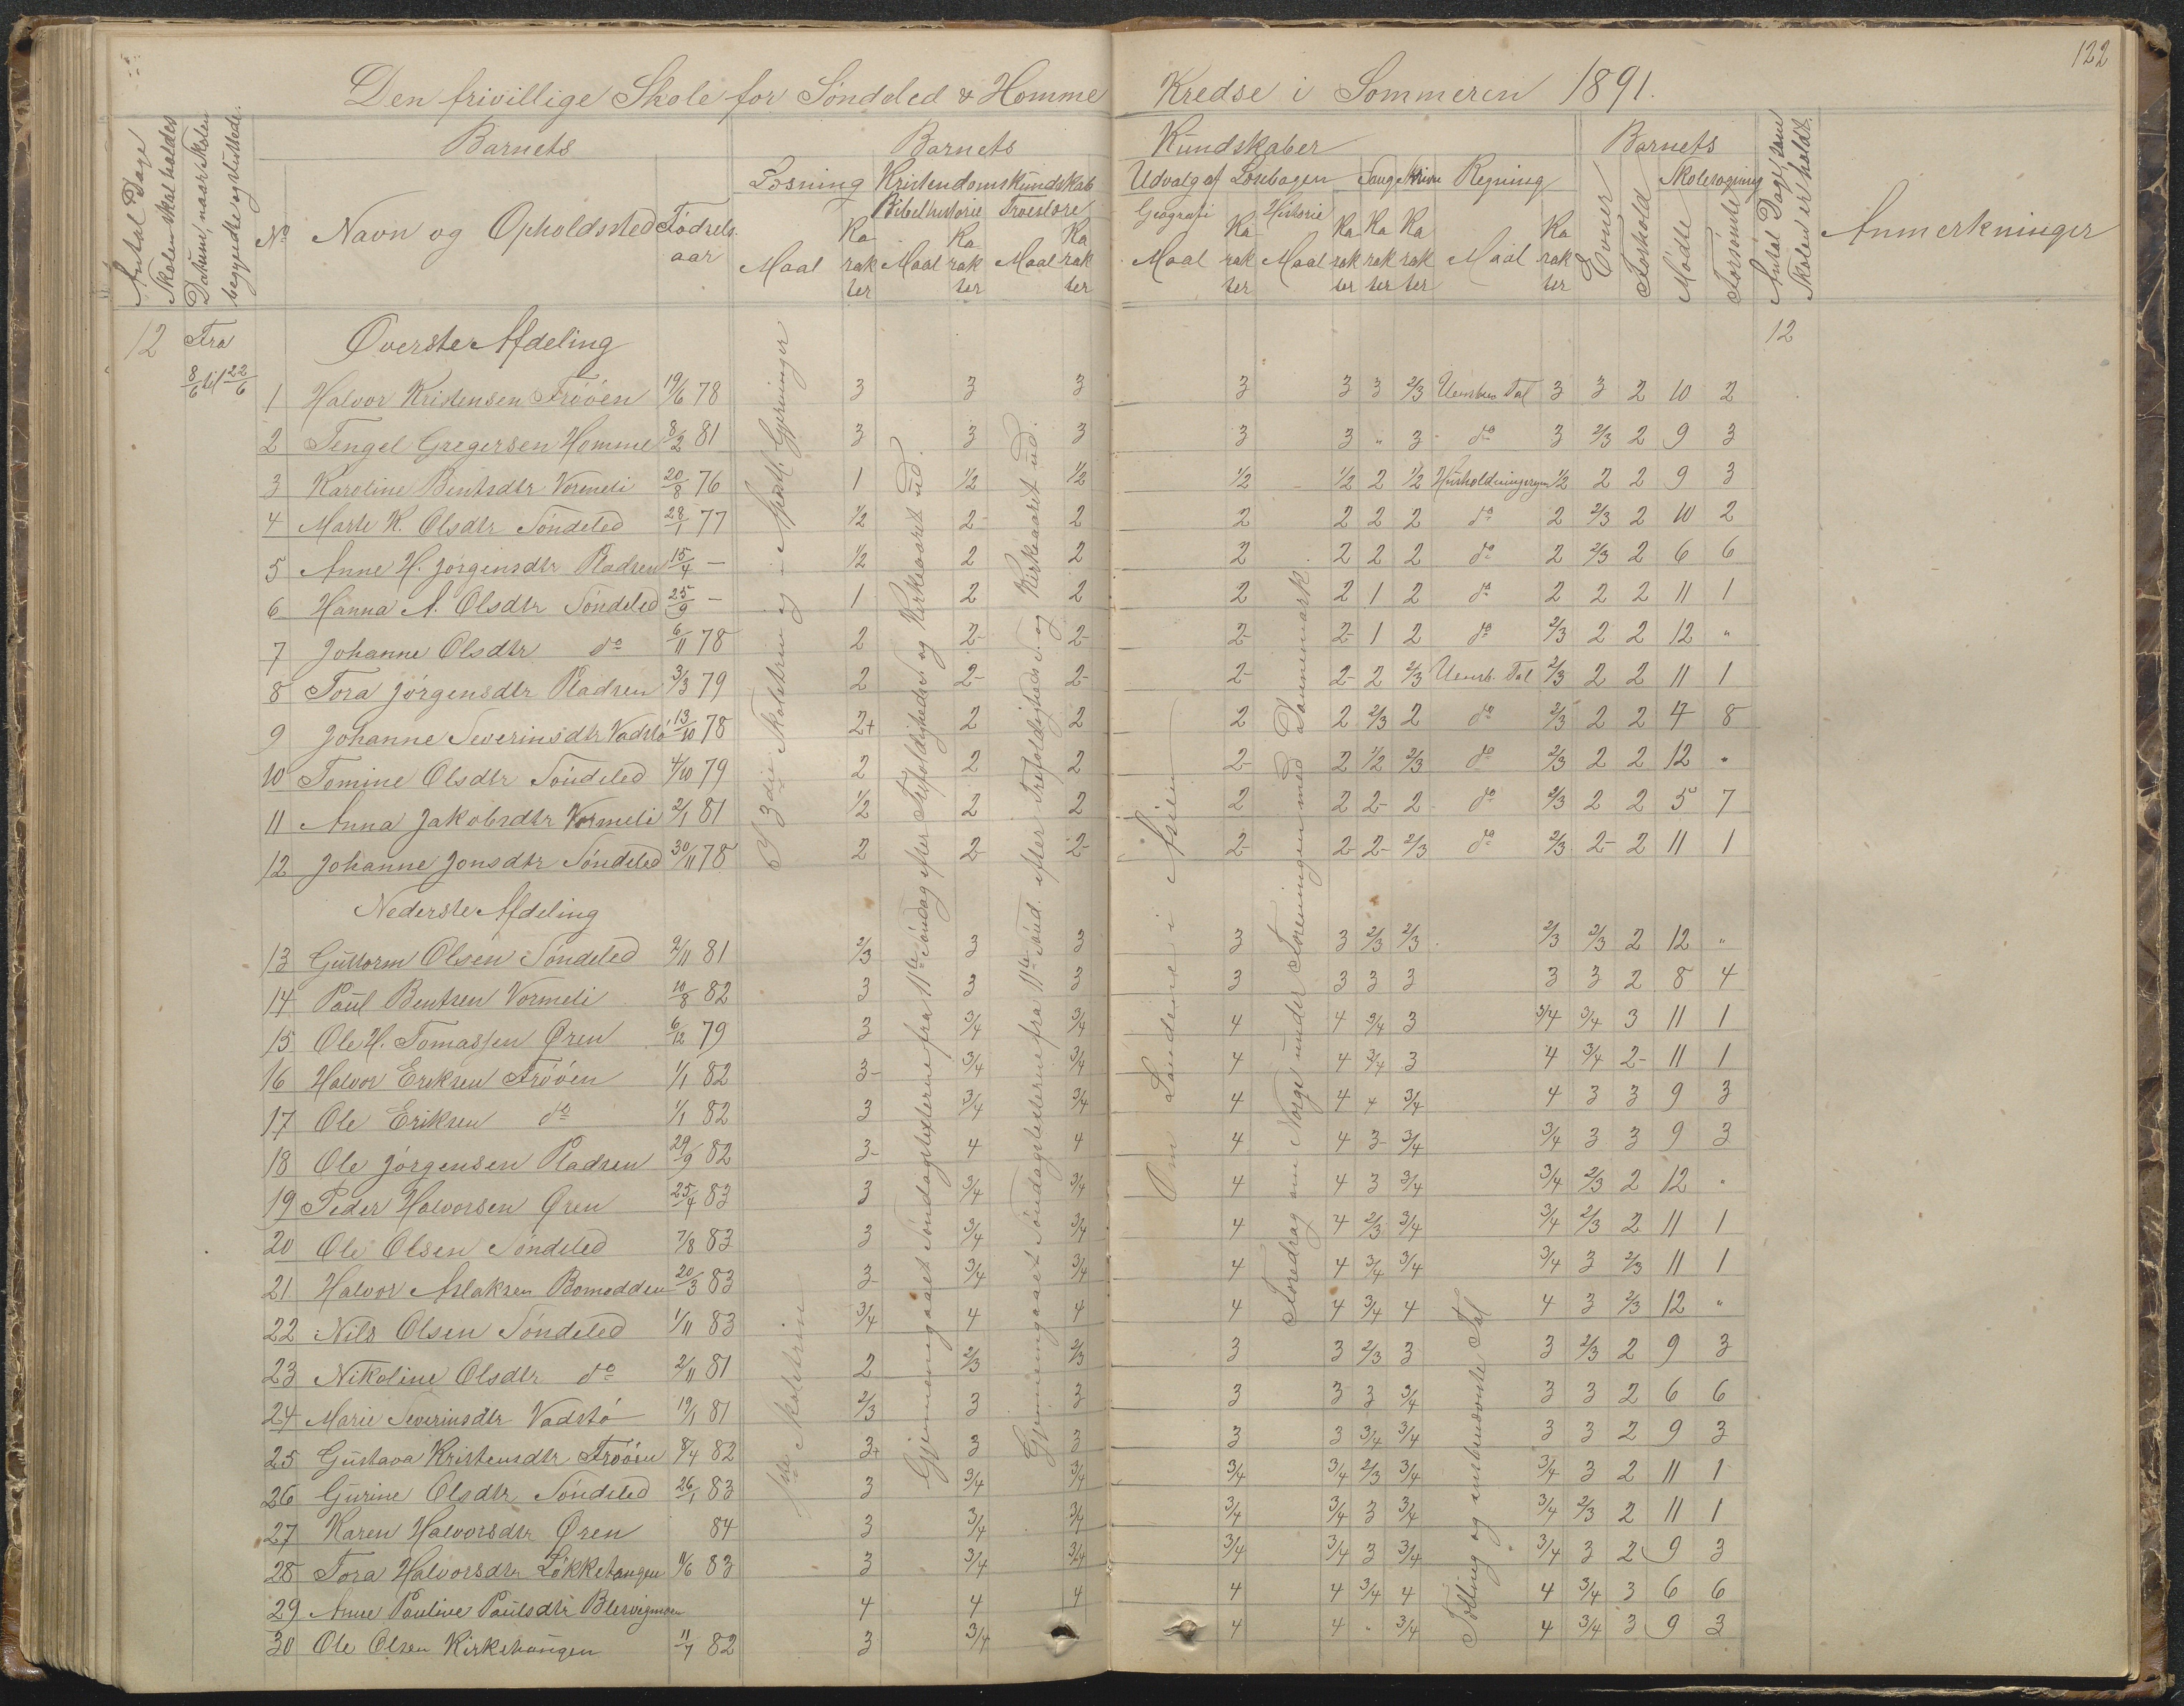 122
Den frivillige Skole for Söndeled & Homme Kredse i Sommeren 1891.
Antal Dage Skolen skal holdes
Datum, naar Skolen begyndte og sluttede.
Barnets
Barnets Kundskaber
Barnets
Antal Dage, som Skolen er holdt.
Anmerkninger
No Navn og Opholdssted Födsels-aar
Læsning Kristendomskundskab Udvalg af Læsebogen Sang Skrivn Regning
Bibelhistorie Troeslære Geografi Historie
Maal Karakter Maal Karakter Maal Karakter Maal Karakter Maal Karakter Karakter Karakter Maal Karakter
Evner Forhold Skolesøgning Mödte Forsömte
12 Fra 8/6 til 22/6
Överste Afdeling
12
1 Halvor Kristensen Frööen 19/6 78 3 3 3 3 3 3 2/3 Uensben Tal 3 3 2 10 2
2 Tengel Gregersen Homme 8/2 81 3 3 3 3 3 " 3 do 3 2/3 2 9 3
3 Karoline Bentsdtr Vormeli 20/8 76 1 1/2 1/2 1/2 1/2 2 1/2 Husholdningsregn 1/2 2 2 9 3
4 Marte K. Olsdtr Söndeled 28/1 77 1/2 2- 2 2 2 2 2 do 2 2/3 2 10 2
5 Anne H. Jörgensdtr Pladsen 15/4 — 1/2 2 2 2 2 2 2 do 2 2/3 2 6 6
6 Hanna A. Olsdtr Söndeled 25/9 — 1 2 2 2 2 1 2 do 2 2 2 11 1
7 Johanne Olsdtr do 6/11 78 2 2- 2- 2- 2- 1 2 do 2/3 2 2 12 "
8 Tora Jörgensdtr Pladsen 3/3 79 2 2- 2- 2- 2- 2 2/3 Uensb. Tal 2/3 2 2 11 1
9 Johanne Severinsdtr Vadstö 13/10 78 2+ 2 2 2 2 2/3 2 do 2/3 2 2 4 8
10 Tomine Olsdtr Söndeled 4/10 79 2 2 2 2- 2 1/2 2/3 do 2/3 2 2 12 "
11 Anna Jakobsdtr Vormeli 2/1 81 1/2 2 2 2 2 2- 2 do 2/3 2 2 5 7
12 Johanne Jonsdtr Söndeled 30/11 78 2 2- 2- 2- 2- 2- 2/3 do 2/3 2- 2 11 1
Nederste Afdeling
13 Guttorm Olsen Söndeled 2/11 81 2/3 3 3 3 3 2/3 2/3 2/3 2/3 2 12 "
14 Paul Bentsen Vormeli 10/8 82 3 3 3 3 3 3 3 3 3 2 8 4
15 Ole H. Tomassen Øren 6/12 79 3 3/4 3/4 4 4 3/4 3 3/4 3/4 3 11 1
16 Halvor Eriksen Frööen 1/1 82 3- 3/4 3/4 4 4 3/4 3 4 3/4 2- 11 1
17 Ole Eriksen do 1/1 82 3 3/4 3/4 4 4 4 3/4 4 3 3 9 3
18 Ole Jörgensen Pladsen 29/9 82 3- 4 4 4 4 3- 3/4 3/4 3 3 9 3
19 Peder Halvorsen Øren 25/4 83 3 3/4 3/4 4 4 3 3/4 3/4 2/3 2 12 "
20 Ole Olsen Söndeled 7/8 83 3 3/4 3/4 4 4 2/3 3/4 3/4 2/3 2 11 1
21 Halvor Aslaksen Bomodden 20/3 83 3- 3/4 3/4 4 4 3/4 3/4 3/4 3 2/3 11 1
22 Nils Olsen Söndeled 1/11 83 3/4 4 4 4 4 3/4 4 4 3 2/3 12 "
23 Nikoline Olsdtr do 2/11 81 2 2/3 2/3 3 3 2/3 3 3 2/3 2 9 3
24 Marie Severinsdtr Vadstö 19/1 81 2/3 3 3 3 3 3 3/4 3 3 2 6 6
25 Gustava Kristensdtr Frööen 8/4 82 3+ 3 3 3 3 3/4 3/4 3 3 2 9 3
26 Gurine Olsdtr Söndeled 26/1 83 3 3/4 3/4 3/4 3/4 2/3 3/4 3/4 3 2 11 1
27 Karen Halvorsdtr Øren 84 3 3/4 3/4 3/4 3/4 3 3/4 3/4 2/3 2 11 1
28 Tora Halvorsdtr Lökkehaugen 11/6 83 3 3/4 3/4 3/4 3/4 3 3/4 3/4 3 2 9 3
29 Anne Pauline Paulsdtr 4 4 4 4 4 3/4 4 4 3/4 3 6 6
30 Ole Olsen Kirkehaugen 11/7 82 3 3/4 4 4 " 3/4 4 3/4 3 9 3
I 3die Skoletrin og i Apostl. Gjerninger
1ste Skoletrin
Gjennemgaaet Söndagsteksterne fra 11te Söndag efter Trefoldigheds og Kirkeaaret ud.
Gjennemgaaet Söndagsteksterne fra 11te Sönd. efter Trefoldigheds S. og Kirkeaaret ud.
Om Landene i Asien
Foredrag om Norge under Foreningen med Dannemark.
Tælling og ensbenævnte Tal